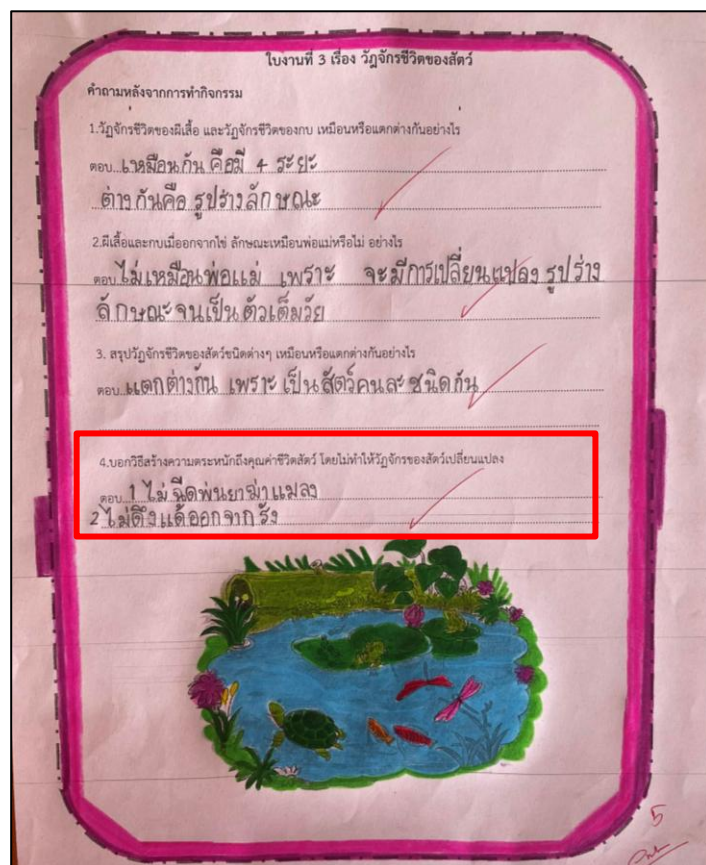 ใบงานที่ 3 เรื่อง วัฏจักรชีวิตของสัตว์
คำถามหลังจากการทำกิจกรรม
1.วัฏจักรชีวิตของผีเสื้อ และวัฏจักรชีวิตของกบ เหมือนหรือแตกต่างกันอย่างไร
ตอบ เหมือนกัน คือมี 4 ระยะ
ต่างกันคือ รูปร่างลักษณะ
2.ผีเสื้อและกบเมื่ออกจากไข่ ลักษณะเหมือนพ่อแม่หรือไม่ อย่างไร
ตอบ ไม่เหมือนพ่อแม่ เพราะ จะมีการเปลี่ยนแปลง รูปร่าง
ลักษณะจนเป็นตัวเต็มวัย
3. สรุปวัฏจักรชีวิตของสัตว์ชนิดต่างๆ เหมือนหรือแตกต่างกันอย่างไร
ตอบ แตกต่างกัน เพราะ เป็นสัตว์คนละชนิดกัน
4.บอกวิธีสร้างความตระหนักถึงคุณค่าชีวิตสัตว์ โดยไม่ทำให้วัฏจักรของสัตว์เปลี่ยนแปลง
ตอบ 1 ไม่ฉีดพ่นยาฆ่าแมลง
2 ไม่ดึงแด้ออกจากรัง
5